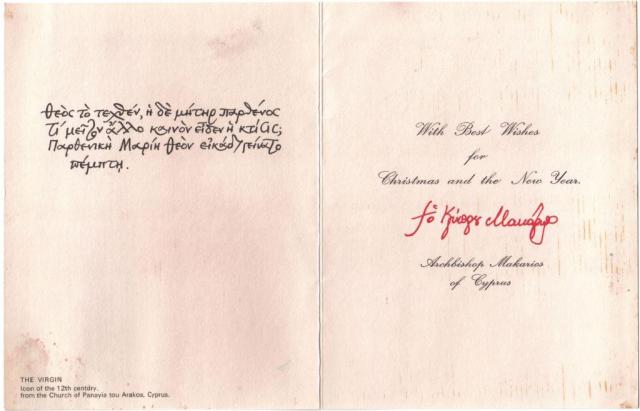 Θεὸς τὸ τεχθέν, ἡ δὲ μήτηρ παρθένος
Τί μεῖζον ἄλλο καινὸν εἶδεν ἡ κτίσις;
Παρθενικὴ Μαρίη Θεὸν εἰκάδι γείνατο
πέμπτῃ.
THE VIRGIN
Icon of the 12th century.
from the Church of Panayia tou Arakos, Cyprus.
With Best Wishes
for
Christmas and the New Year.
† ὁ Κύπρου Μακάριος
Archbishop Makarios
of Cyprus